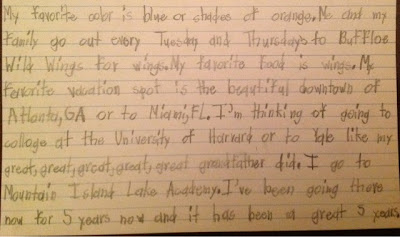 My favorite color is blue or chades of orange. Me and my
family go out every Tuesday and Thursdays to Buffloe
Wild Wings for wings. My favorite food is wings. My
fevorite vacation spot is the beautiful downtown of
Atlanta, GA or to Miami, FL. I'm thinking of going to
college at the University of Harvard or to Yale like my
great, great, great, great, great grandfather did. I go to
Mountain Island Lake Academy. I've been going there
now for 5 years now and it has been a great 5 years.